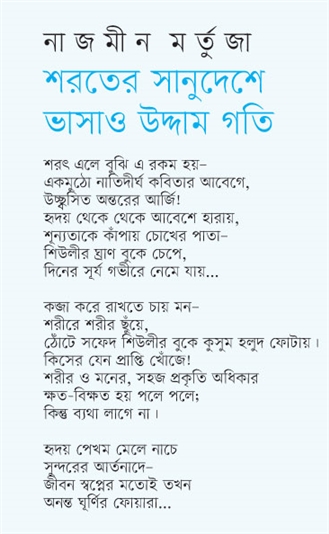 নাজমীন মর্তুজা
শরতের সানুদেশে
ভাসাও উদ্দাম গতি
শরৎ এলে বুঝি এ রকম হয়–
একমুঠো নাতিদীর্ঘ কবিতার আবেগে,
উচ্ছ্বসিত অন্তরের আর্জি!
হৃদয় থেকে থেকে আবেশে হারায়,
শূন্যতাকে কাঁপায় চোখের পাতা–
শিউলীর ঘ্রাণ বুকে চেপে,
দিনের সূর্য গভীরে নেমে যায়...
কব্জা করে রাখতে চায় মন–
শরীরে শরীর ছুঁয়ে,
ঠোঁটে সফেদ শিউলীর বুকে কুসুম হলুদ ফোটায়।
কিসের যেন প্রাপ্তি খোঁজে!
শরীর ও মনের, সহজ প্রকৃতি অধিকার
ক্ষত-বিক্ষত হয় পলে পলে;
কিন্তু ব্যথা লাগে না।
হৃদয় পেখম মেলে নাচে
সুন্দরের আর্তনাদে–
জীবন স্বপ্নের মতোই তখন
অনন্ত ঘূর্ণির ফোয়ারা...